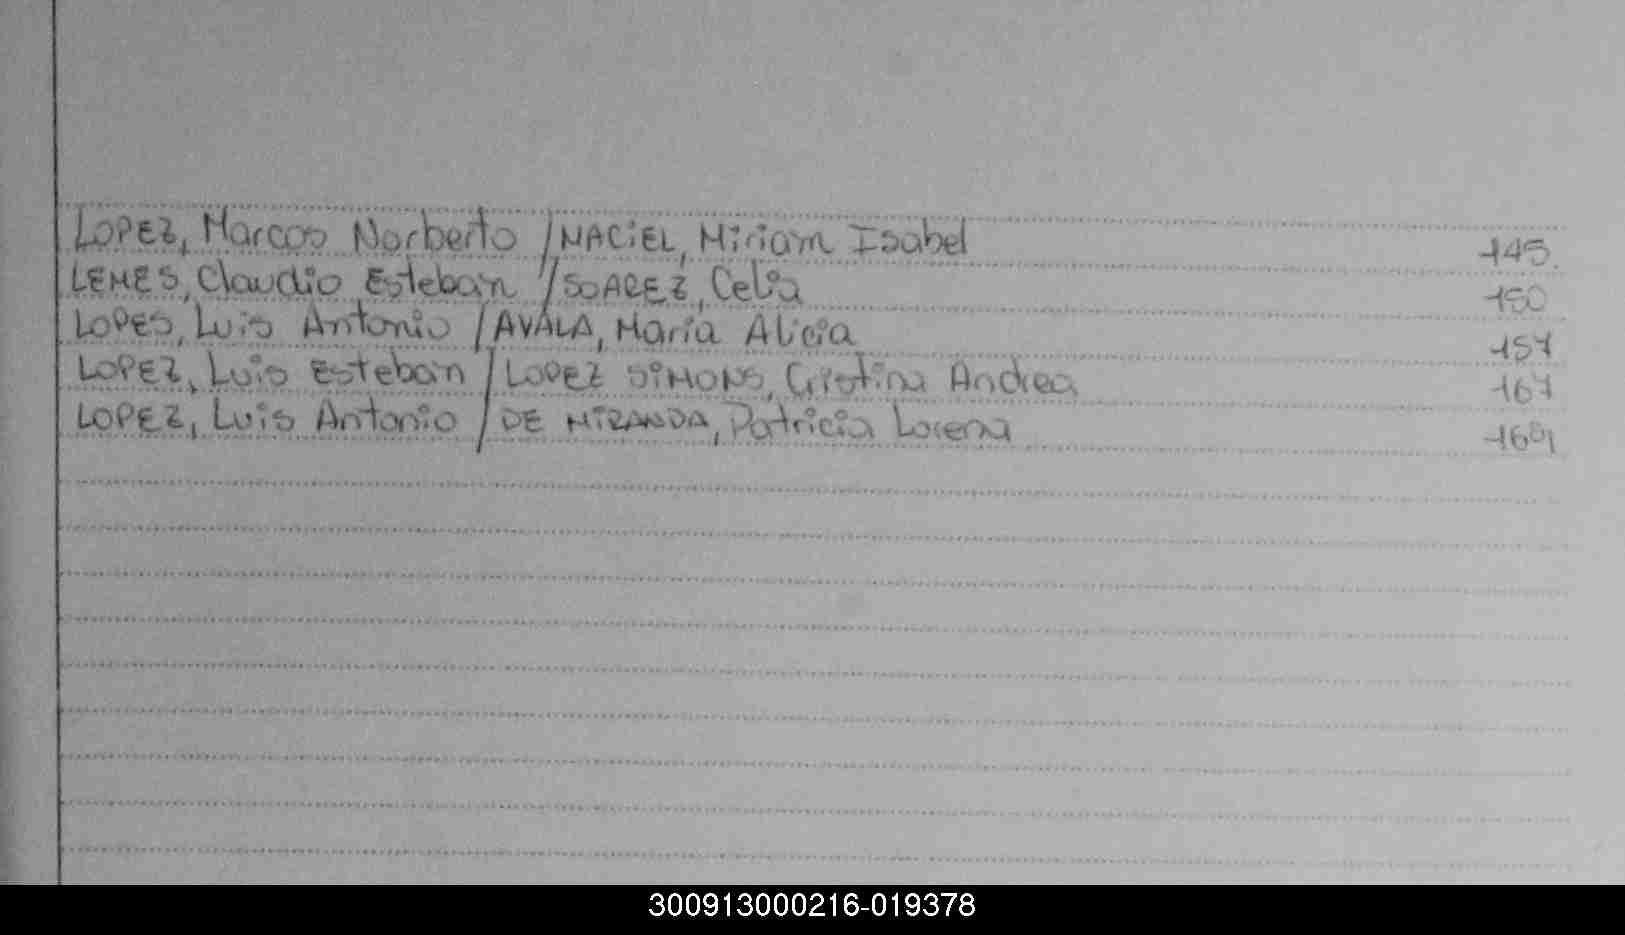 LOPEZ, Marcos Norberto / MACIEL, Miriam Isabel 145.
LEMES, Claudio Esteban / SOAREZ, Celia 150
LOPES, Luis Antonio / AVALA, Maria Alicia 157
LOPEZ, Luis Esteban / LOPEZ SIMONS, Cristina Andrea 167
LOPEZ, Luis Antonio / DE MIRANDA, Patricia Lorena 169
300913000216-019378